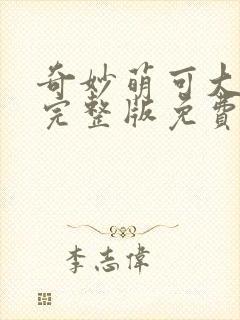 奇妙萌可大
完整版免費
李志偉